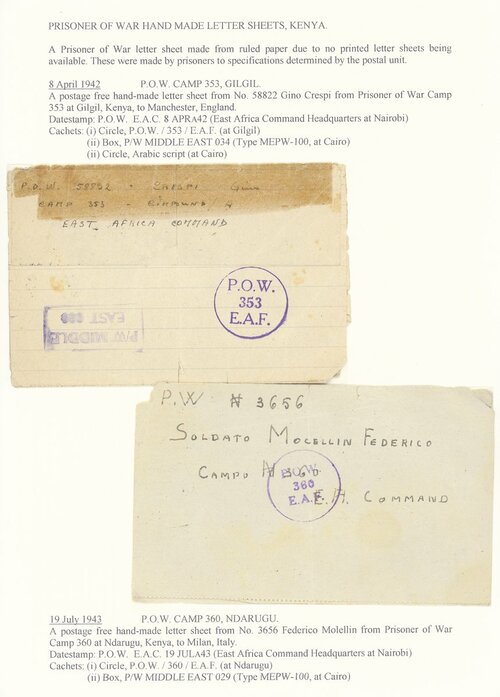 PRISONER OF WAR HAND MADE LETTER SHEETS, KENYA.
A Prisoner of War letter sheet made from ruled paper due to no printed letter sheets being
available. These were made by prisoners to specifications determined by the postal unit.
8 April 1942 P.O.W. CAMP 353, GILGIL.
A postage free hand-made letter sheet from No. 58822 Gino Crespi from Prisoner of War Camp
353 at Gilgil, Kenya, to Manchester, England.
Datestamp: P.O.W. E.A.C. 8 APRA42 (East Africa Command Headquarters at Nairobi)
Cachets: (i) Circle, P.O.W. / 353 / E.A.F. (at Gilgil)
(ii) Box, P/W MIDDLE EAST 034 (Type MEPW-100, at Cairo)
(ii) Circle, Arabic script (at Cairo)
P.O.W. 58822 - CRESPI Gino
CAMP 353 -
EAST AFRICA COMMAND
P.O.W.
353
E.A.F.
P/W MIDDLE
EAST
P.W № 3656
SOLDATO MOCELLIN FEDERICO
CAMPO № 360
E.A. COMMAND
P.O.W.
360
E.A.F.
19 July 1943 P.O.W. CAMP 360, NDARUGU.
A postage free hand-made letter sheet from No. 3656 Federico Molellin from Prisoner of War
Camp 360 at Ndarugu, Kenya, to Milan, Italy.
Datestamp: P.O.W. E.A.C. 19 JULA43 (East Africa Command Headquarters at Nairobi)
Cachets: (i) Circle, P.O.W. / 360 / E.A.F. (at Ndarugu)
(ii) Box, P/W MIDDLE EAST 029 (Type MEPW-100, at Cairo)